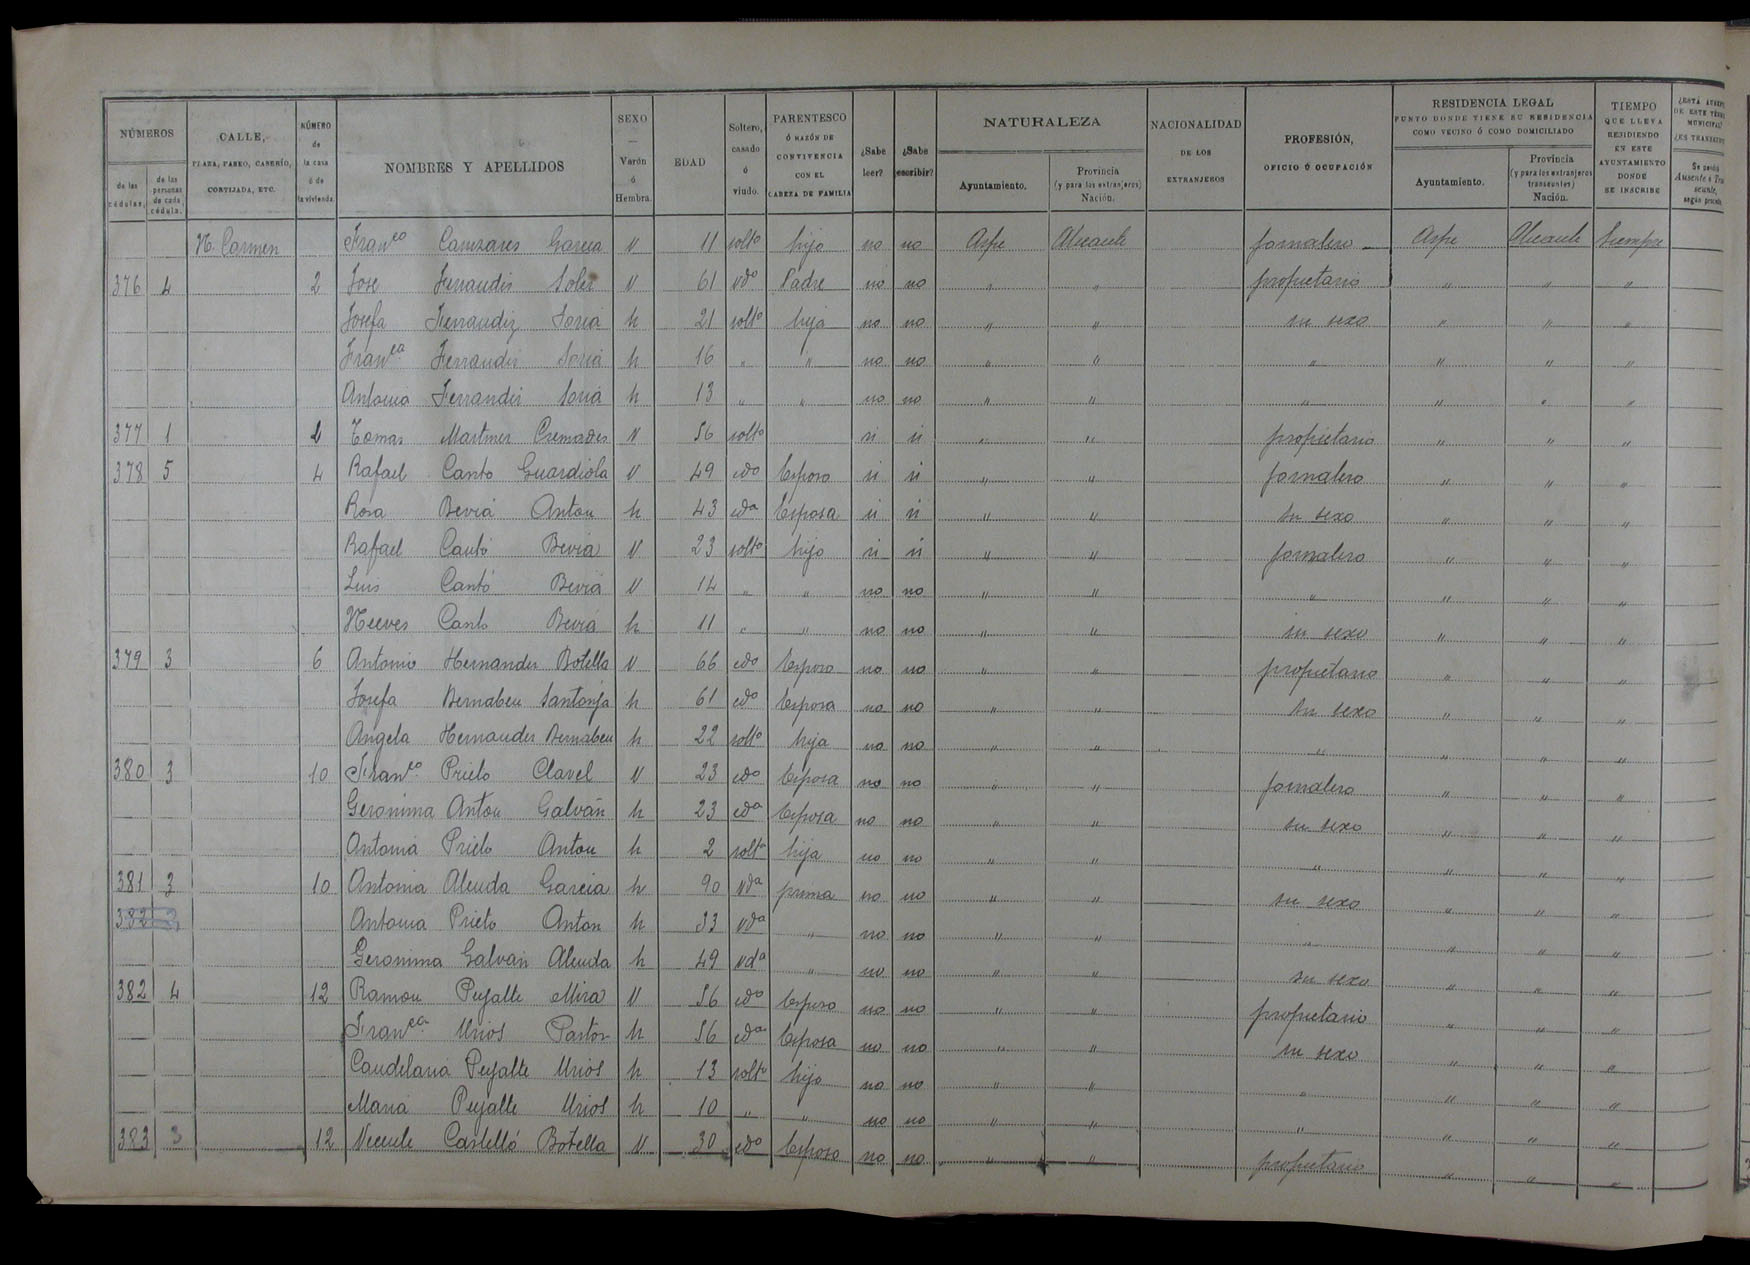 NÚMEROS
de las cédulas.
de las personas de cada cédula.
CALLE,
PLAZA, PASEO, CASERÍO,
CORTIJADA, ETC.
NÚMERO
de
la casa
ó de
la vivienda.
NOMBRES Y APELLIDOS
SEXO
—
Varón
ó
Hembra.
EDAD
Soltero,
casado
ó
viudo.
PARENTESCO
Ó RAZÓN DE
CONVIVENCIA
CON EL
CABEZA DE FAMILIA
¿Sabe
leer?
¿Sabe
escribir?
NATURALEZA
Ayuntamiento.
Provincia
(y para los extranjeros)
Nación.
NACIONALIDAD
DE LOS
EXTRANJEROS
PROFESIÓN,
OFICIO Ó OCUPACIÓN
RESIDENCIA LEGAL
PUNTO DONDE TIENE SU RESIDENCIA
COMO VECINO Ó COMO DOMICILIADO
Ayuntamiento.
Provincia
(y para los extranjeros
transeuntes)
Nación.
TIEMPO
QUE LLEVA
RESIDIENDO
EN ESTE
AYUNTAMIENTO
DONDE
SE INSCRIBE
N. Carmen Franco Canizares Garcia V 11 solto hijo no no Aspe Alicante jornalero Aspe Alicante Siempre
376 4 2 Jose Ferrandis Soler V 61 vdo Padre no no " " propietario " " "
Josefa Ferrandiz Soria h 21 solto hija no no " " su sexo " " "
Franca Ferrandis Soria h 16 " " no no " " " " " "
Antonia Ferrandis Soria h 13 " " no no " " " " " "
377 1 2 Tomas Martines Cremades V 56 solto si si " " propietario " " "
378 5 4 Rafael Canto Guardiola V 49 cdo Esposo si si " " jornalero " " "
Rosa Bevia Anton h 43 cda Esposa si si " " su sexo " " "
Rafael Cantó Bevia V 23 solto hijo si si " " jornalero " " "
Luis Cantó Bevia V 14 " " no no " " " " " "
Nieves Canto Bevia h 11 " " no no " " su sexo " " "
379 3 6 Antonio Hernandes Botella V 66 cdo Esposo no no " " propietario " " "
Josefa Bernabeu Santonja h 61 cdo Esposa no no " " su sexo " " "
Angela Hernandes Bernabeu h 22 solto hija no no " " " " " "
380 3 10 Franco Prieto Clavel V 23 cdo Esposa no no " " jornalero " " "
Geronima Anton Galván h 23 cda Esposa no no " " su sexo " " "
Antonia Prieto Anton h 2 solta hija no no " " " " " "
381 3 10 Antonia Alenda Garcia h 90 vda prima no no " " su sexo " " "
382 3 Antonia Prieto Anton h 33 vda " no no " " " " " "
Geronima Galvan Alenda h 49 vda " no no " " su sexo " " "
382 4 12 Ramon Pujalte Mira V 56 cdo Esposo no no " " propietario " " "
Franca Urios Pastor h 56 cda Esposa no no " " su sexo " " "
Candelaria Pujalte Urios h 13 solto hijo no no " " " " " "
Maria Pujalte Urios h 10 " " no no " " " " " "
383 3 12 Vicente Castelló Botella V 30 cdo Esposo no no " " propietario " " "